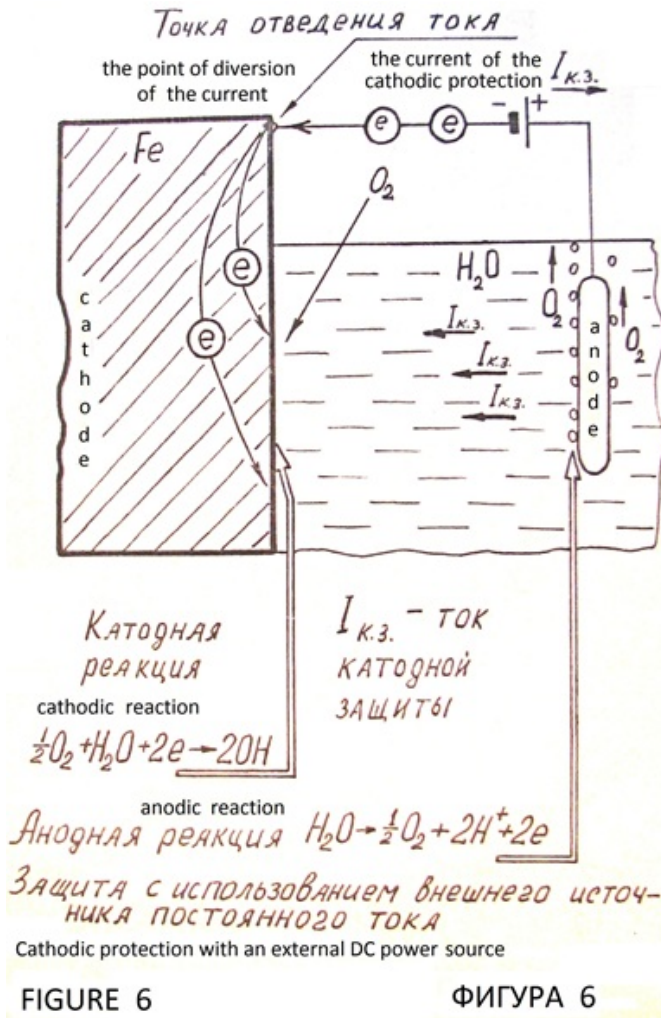 Точка отведения тока
the point of diversion
of the current
the current of the
cathodic protection
Iк.з.
- +
e e
Fe
O₂
e
e
cathode
H₂O
O₂
O₂
anode
Iк.з.
Iк.з.
Iк.з.
Катодная
реакция
cathodic reaction
½O₂+H₂O+2e→2OH
Iк.з. – ток
катодной
защиты
anodic reaction
Анодная реакция H₂O→½O₂+2H⁺+2e
Защита с использованием внешнего источ-
ника постоянного тока
Cathodic protection with an external DC power source
FIGURE 6
ФИГУРА 6